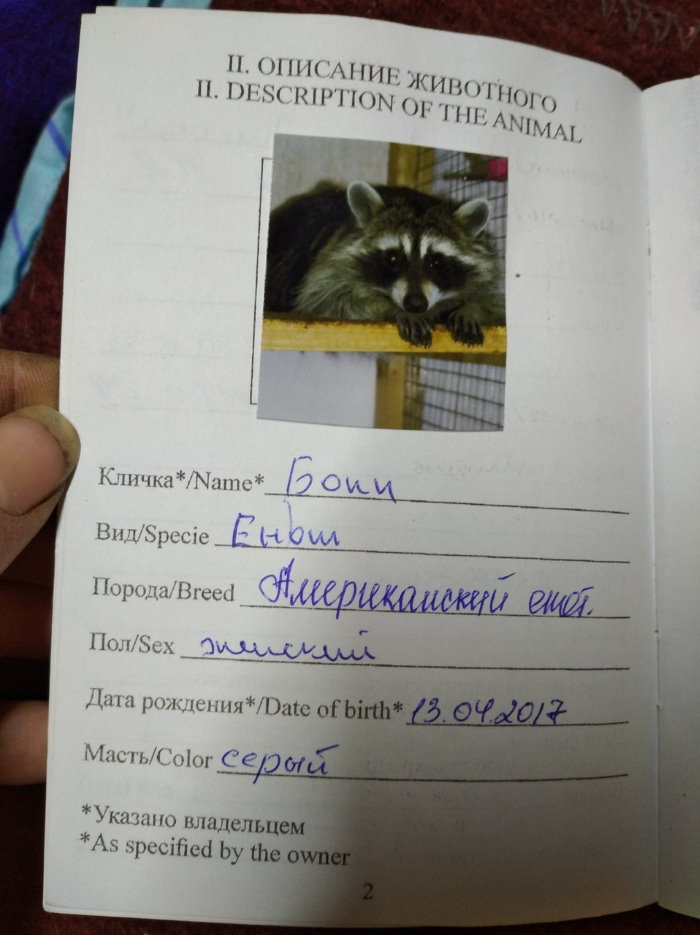 II. ОПИСАНИЕ ЖИВОТНОГО
II. DESCRIPTION OF THE ANIMAL
Кличка*/Name* Бони
Вид/Specie Еньот
Порода/Breed Американский енот.
Пол/Sex женский
Дата рождения*/Date of birth* 13.04.2017
Масть/Color серый
*Указано владельцем
*As specified by the owner
2